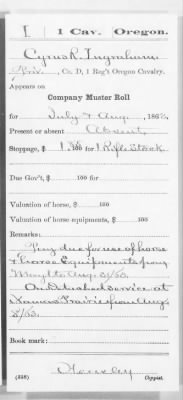 I | 1 Cav. | Oregon.
Cyrus R. Ingraham
Priv., Co. D, 1 Reg't Oregon Cavalry.
Appears on
Company Muster Roll
for July & Aug., 1863.
Present or absent Absent
Stoppage, $ 1 100 for 1 Rifle Stock
Due Gov't, $ 100 for
Valuation of horse, $ 100
Valuation of horse equipments, $ 100
Remarks:
Pay due for use of horse
& horse Equipments from
May 1 to Aug. 31/63.
On Detached service at
Prairie from Aug.
/63.
Book mark:
(358) Copyist.